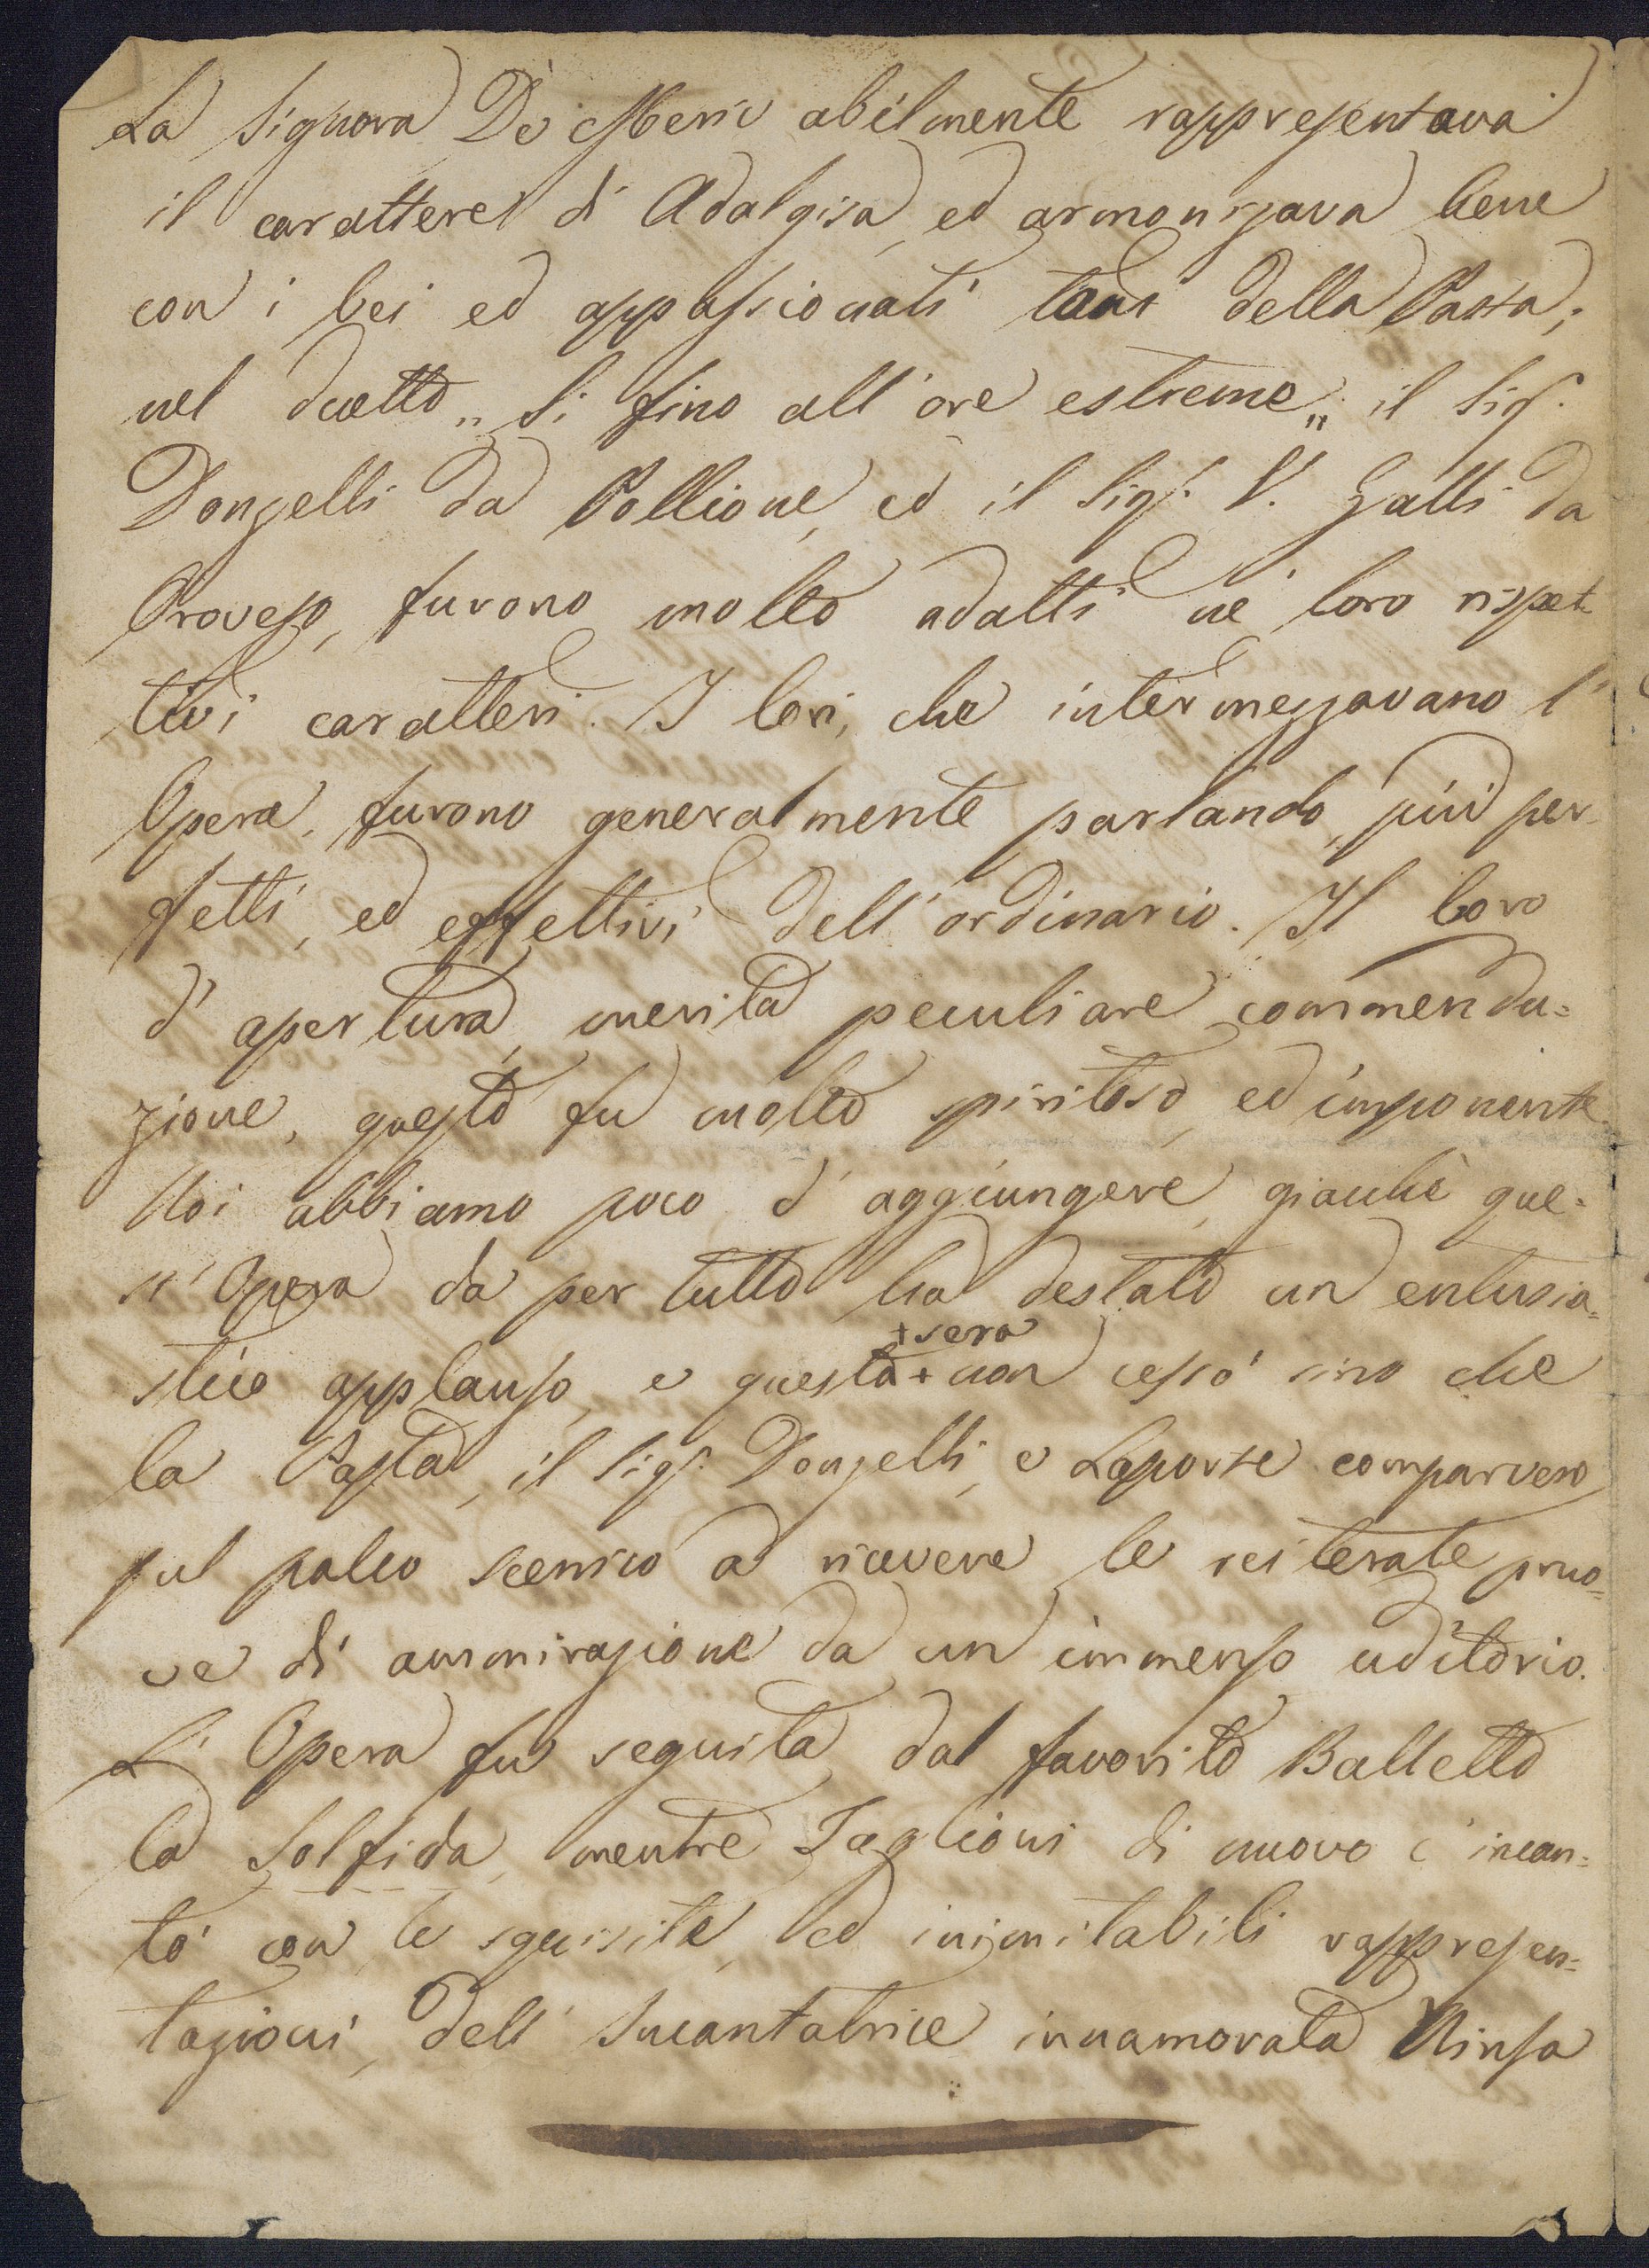 La Signora De Meric abilmente rappresentava
il carattere di Adalgisa, ed armonizava bene
con i bei ed appassionati tuoni della Pasta,
nel duetto „ Si fino all'ore estreme „ il Sigr.
Donzelli da Pollione, ed il Sigr. V. Galli da
Oroveso, furono molto adatti ne' loro rispet
tivi caratteri. I Cori, che intermezzavano l'
Opera, furono generalmente parlando, più per-
fetti, ed effettivi dell'ordinario. Il Coro
d'apertura, merita peculiare commenda=
zione, questo fu molto spiritoso, ed imponente.
Noi abbiamo poco d'aggiungere, giacchè que=
st'Opera da per tutto ha destato un entusia=
+sera
stico applauso, e questa+ non cessò sino che
la Pasta, il Sigr. Donzelli, e Laporte comparvero
sul palco scenico a ricevere le reiterate pruo=
ve di ammirazione da un immenso uditorio.
L'Opera fu seguita dal favorito Balletto
la Solfida, mentre Taglioni di nuovo c'incan=
tò con le squisite, ed inimitabili rappresen=
tazioni, dell'Incantatrice innamorata Ninfa